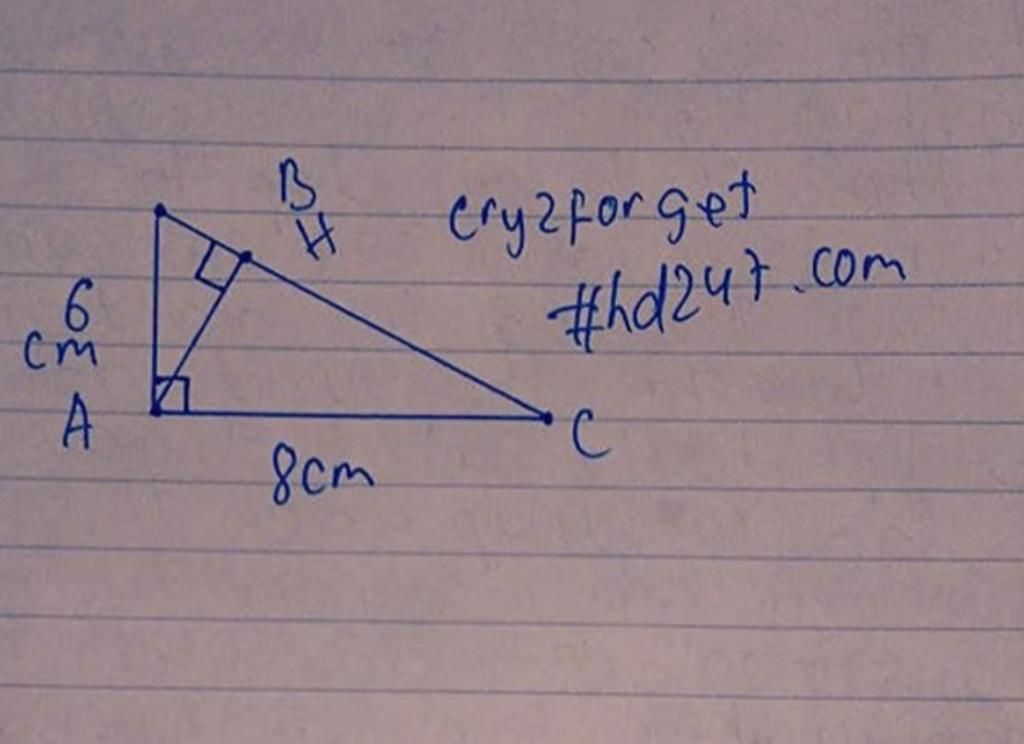 B
H
cry2forget
#hd247.com
6
cm
A
C
8cm